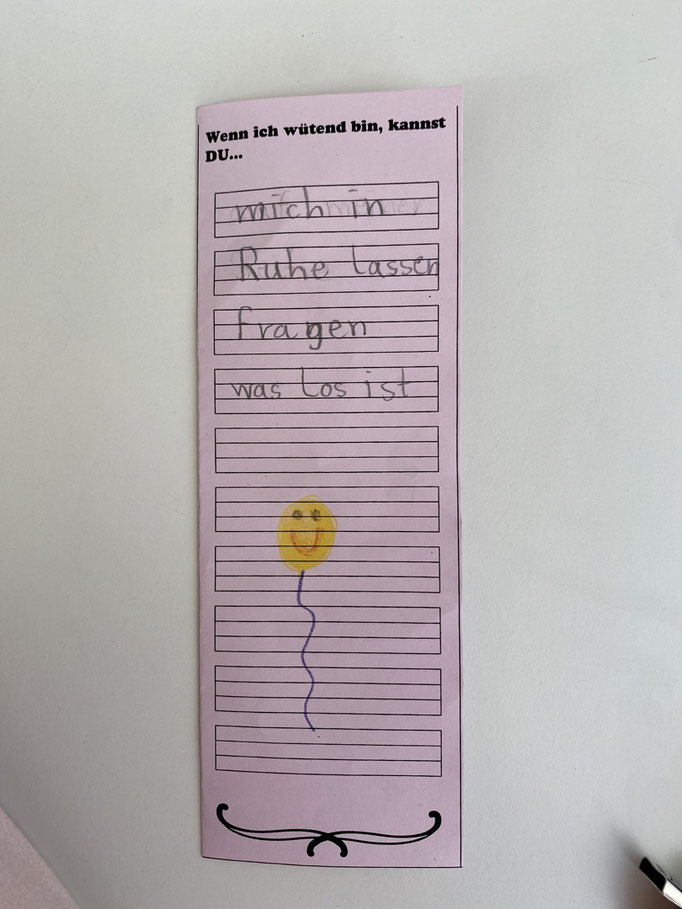 Wenn ich wütend bin, kannst
DU...
mich in
Ruhe lassen
fragen
was los ist